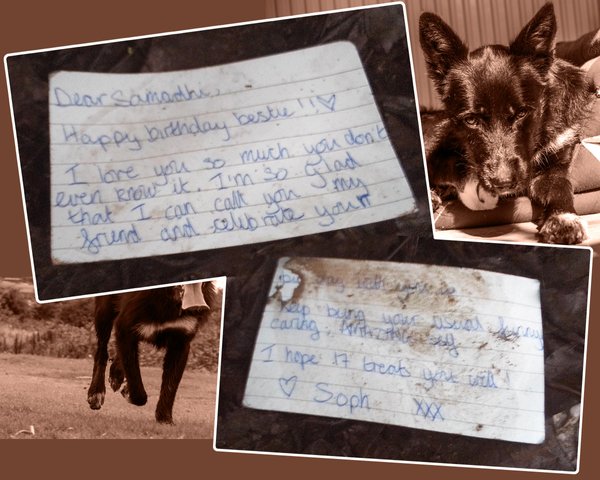 Dear Samadhi,
Happy birthday bestie!! ♡
I love you so much you don't
even know it. I'm so glad
that I can call you my
friend and celebrate your
day with you
keep being your usual funny
caring, self
I hope 17 treats you well!
♡ Soph XXX